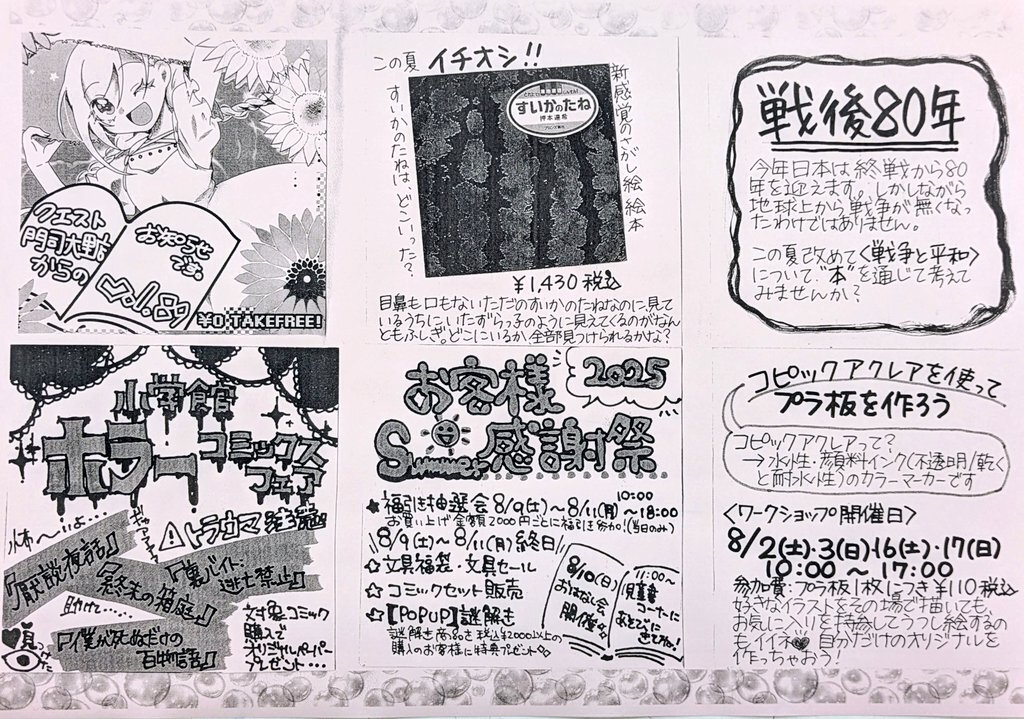 クエスト
門司大野店
からの
お知らせ
です。
Vol.89
¥0 TAKEFREE!
この夏 イチオシ!!
すいかのたねは、どこいった?
すいかのたね
新感覚のさがし絵 絵本
¥1,430 税込
目鼻も口もないただのすいかのたねなのに見て
いるうちに、いたずらっ子のように見えてくるのがなん
ともふしぎ。どこにいるか全部見つけられるかな?
戦後80年
今年日本は終戦から80
年を迎えます。しかしながら
地球上から戦争が無くなっ
たわけではありません。
この夏改めて〈戦争と平和〉
について、"本"を通じて考えて
みませんか?
小学館
ホラー
コミックス
フェア
怖〜いよ…
ぎゃー
⚠トラウマ注意
『厭談夜話』
『終末の箱庭』
『裏バイト:
逃亡禁止』
助けて…
『僕が死ぬだけの
百物語』
見つみた
対象コミック
購入で
オリジナルペーパー
プレゼント…
お客様 2025
Summer 感謝祭
☆福引き抽選会 8/9(土)〜8/11(月) 10:00〜18:00
お買い上げ金額2000円ごとに福引き参加!(当日のみ)
8/9(土)〜8/11(月)終日
☆文具福袋・文具セール
☆コミックセット販売
☆【POPUP】謎解き
謎解き商品を税込¥2000以上の
購入のお客様に特典プレゼント
8/10(日)
おはなし会
開催
11:00〜
児童書
コーナーに
あそびに
きてね!
コピックアクレアを使って
プラ板を作ろう
コピックアクレアって?
→水性・顔料インク(不透明/乾く
と耐水性)のカラーマーカーです
〈ワークショップ開催日〉
8/2(土)・3(日)・16(土)・17(日)
10:00〜17:00
参加費:プラ板1枚につき¥110税込
好きなイラストをその場で描いても、
お気に入りを持参してうつし絵するの
もイイネ♥自分だけのオリジナルを
作っちゃおう!